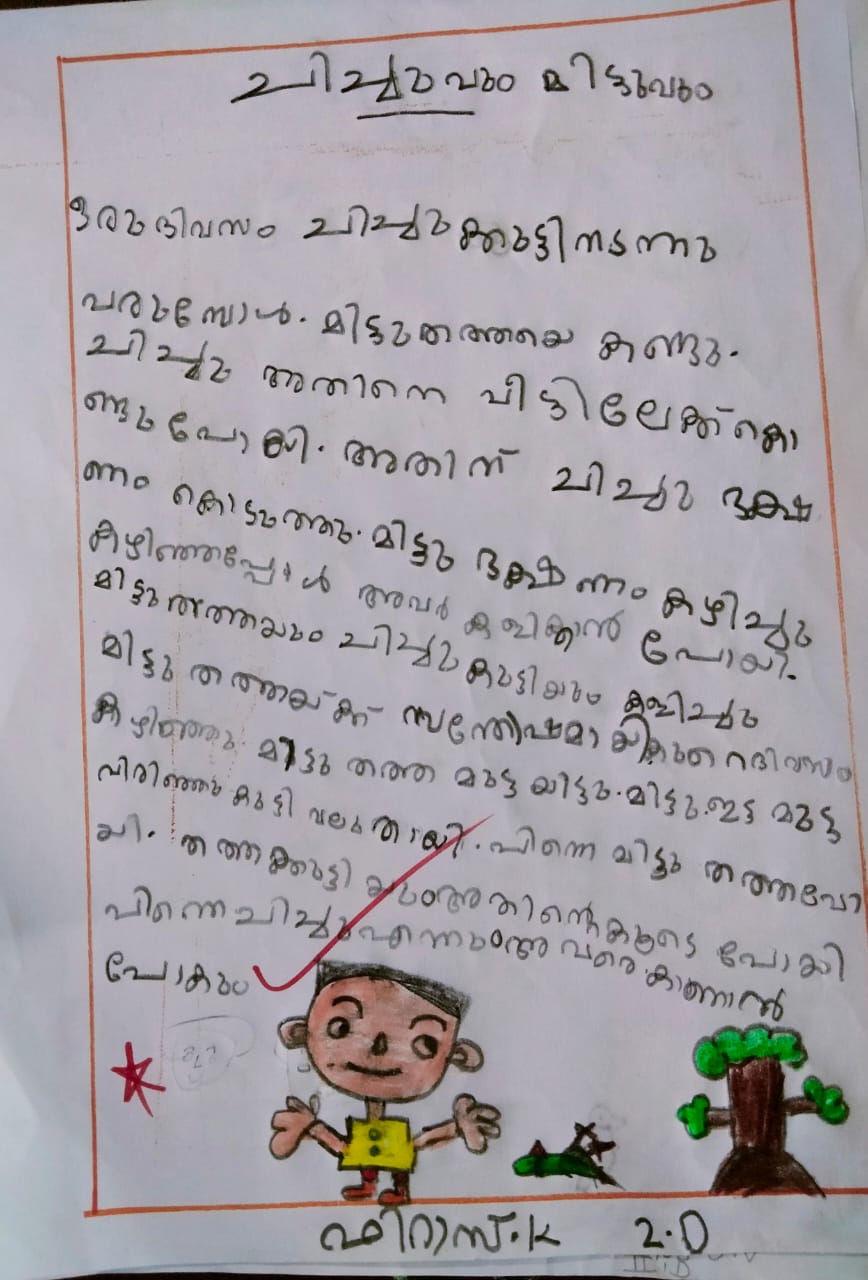 ചിച്ചുവും മിട്ടുവും
ഒരു ദിവസം ചിച്ചുക്കുട്ടി നടന്നു
വരുമ്പോൾ. മിട്ടുതത്തയെ കണ്ടു.
ചിച്ചു അതിനെ വീട്ടിലേക്ക് കൊ
ണ്ടുപോയി. അതിന് ചിച്ചു ഭക്ഷ
ണം കൊടുത്തു. മിട്ടു ഭക്ഷണം കഴിച്ചു
കഴിഞ്ഞപ്പോൾ അവർ കളിക്കാൻ പോയി.
മിട്ടുതത്തയും ചിച്ചുകുട്ടിയും കളിച്ചു
മിട്ടു തത്തയ്ക്ക് സന്തോഷമായി കുറെ ദിവസം
കഴിഞ്ഞു. മിട്ടു തത്ത മുട്ടയിട്ടു. മിട്ടു. ഇട്ട മുട്ട
വിരിഞ്ഞു കുട്ടി വലുതായി. പിന്നെ മിട്ടു തത്തപോ
യി. തത്തക്കുട്ടിയും അതിന്റെ കൂടെ പോയി
പിന്നെ ചിച്ചു എന്നും അവരെ കാണാൻ
പോകും
ഫിറാസ്.k 2.D